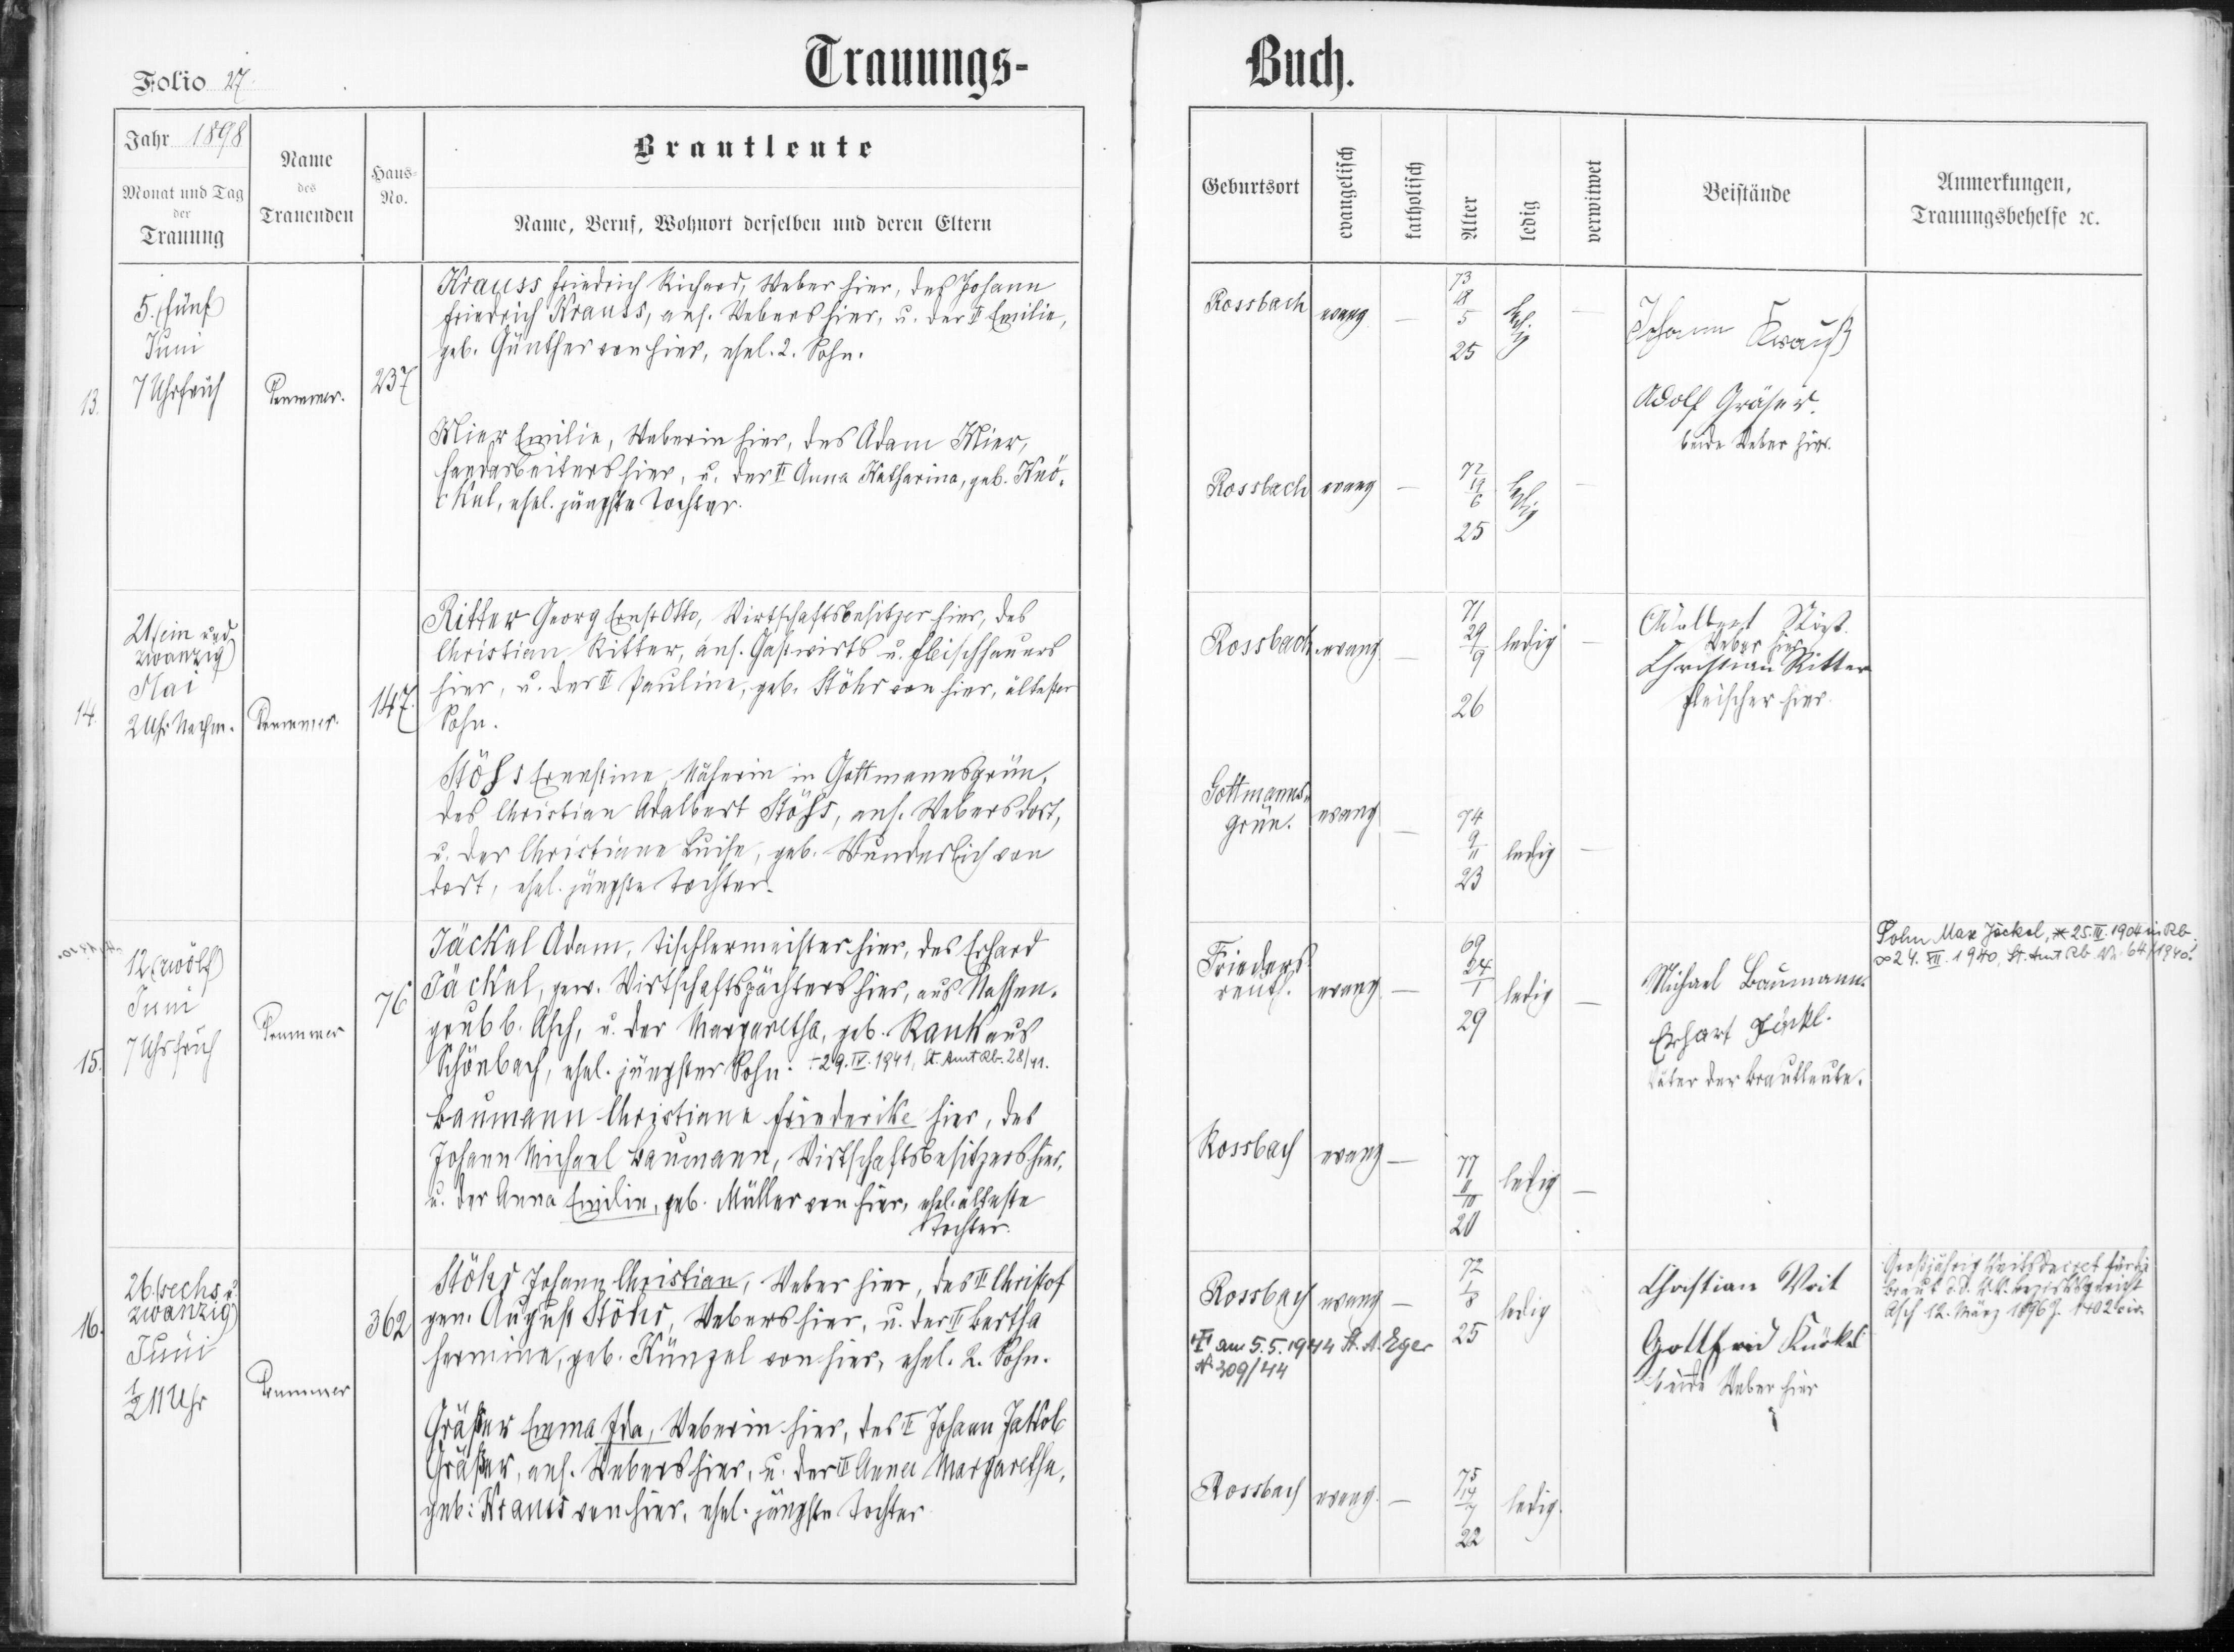 Trauungs-
Buch.
Folio 27.
Jahr 1898
Monat und Tag
der
Trauung
Name
des
Trauenden
Haus-
No.
Brautleute
Name, Beruf, Wohnort derselben und deren Eltern
Geburtsort
evangelisch
katholisch
Alter
ledig
verwitwet
Beistände
Anmerkungen,
Trauungsbehelfe ꝛc.
13.
5. (fünf)
Juni
7 Uhr früh
237
Krauss Friedrich Richard, Weber hier, des Johann
Friedrich Krauss, ans. Webers hier, u. der Emilie,
geb. Günther von hier, ehel. 2. Sohn.
Rossbach evang — 73 18/5 25 ledig —
Johann Krauß
Adolf Gräser.
beide Weber hier.
Mier Emilie, Weberin hier, des Adam Mier,
Handarbeiters hier, u. der Anna Katharina, geb. Knö-
ckel, ehel. jüngste Tochter.
Rossbach evang — 72 19/6 25 ledig —
14.
21 (ein und
zwanzig)
Mai
2 Uhr Nachm.
147.
Ritter Georg Ernst Otto, Wirtschaftsbesitzer hier, des
Christian Ritter, ans. Gastwirts u. Fleischhauers
hier, u. der Pauline, geb. Stöhr von hier, ältester
Sohn.
Rossbach. evang — 71 29/9 26 ledig —
Weber hier
Christian Ritter
Fleischer hier.
Stöhr Ernestine, Näherin in Gottmannsgrün,
des Christian Adalbert Stöhr, ans. Webers dort,
u. der Christiane Luise, geb. Wunderlich von
dort, ehel. jüngste Tochter.
Gottmanns-
grün. evang — 74 9/11 23 ledig —
15.
12. (zwölf)
Juni
7 Uhr früh
76
Jäckel Adam, Tischlermeister hier, des Erhard
Jäckel, gew. Wirtschaftspächters hier, aus Nassen-
grub b. Asch, u. der Margaretha, geb. Rank aus
Schönbach, ehel. jüngster Sohn. + 29. IV. 1941, St. Amt Rb. 28/41.
Frieders-
reuth. evang — 69 24/1 29 ledig —
Michael Baumann.
Erhart Jäckl.
Väter der Brautleute.
Sohn Max Jäckel, * 25. III. 1904 in Rb.
∞ 24. VII. 1940, St. Amt Rb Nr. 64/1940.
Baumann Christiane Friederike hier, des
Johann Michael Baumann, Wirtschaftsbesitzers hier,
u. der Anna Emilie, geb. Müller von hier, ehel. älteste
Tochter.
Rossbach evang — 77 11/10 20 ledig —
16.
26. (sechs u.
zwanzig)
Juni
½ 11 Uhr
362
Stöhr Johann Christian, Weber hier, des Christof
gen. August Stöhr, Webers hier, u. der Bertha
Hermine, geb. Künzel von hier, ehel. 2. Sohn.
Rossbach evang — 72 1/8 25 ledig
am 5.5.1944 St. A. Eger
№ 309/44
Christian Voit
Gottfried
beide Weber hier
Großjährigkeitsdecret für die
Braut d.d. k.k. Bezirksgericht
Asch 12. März 1896
Gräßer Emma Ida, Weberin hier, des Johann Jakob
Gräßer, ans. Webers hier, u. der Anna Margaretha,
geb. Krauss von hier, ehel. jüngste Tochter
Rossbach evang. — 75 14/7 22 ledig.